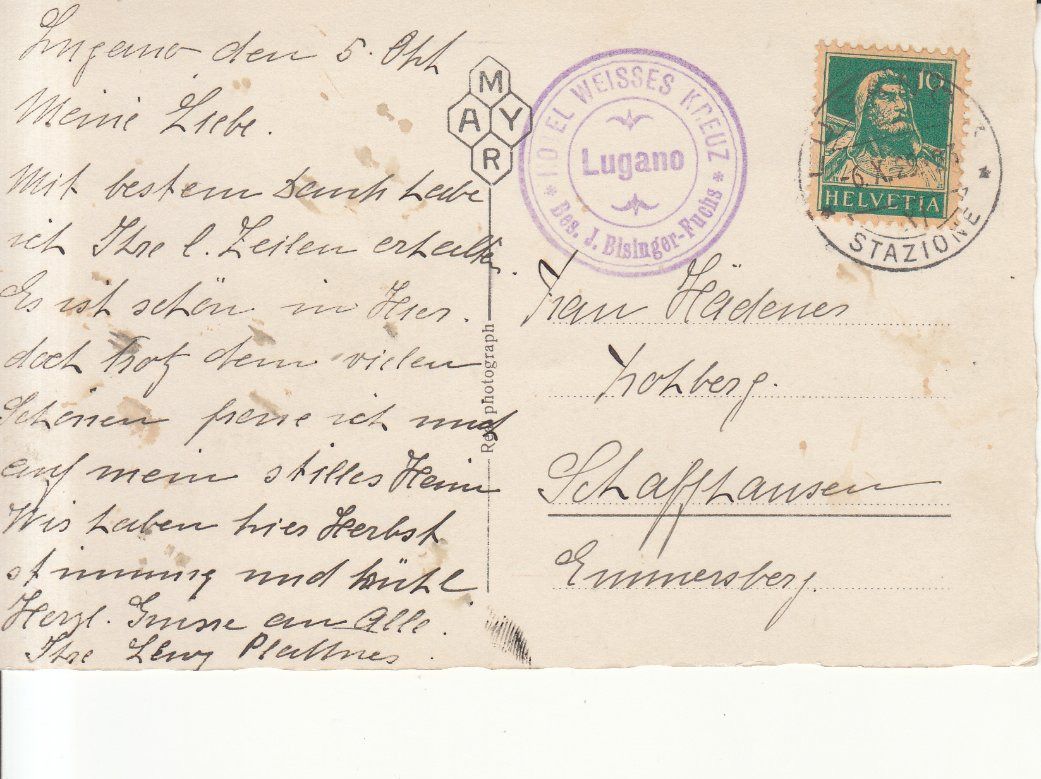 Lugano den 5. Okt
Meine Liebe.
Mit bestem Dank habe
ich Ihre l. Zeilen erhalten.
Es ist schön in hier.
doch trotz dem vielen
Schönen freue ich mich
auf mein stilles Heim
Wir haben hier Herbst
stimmung und kühl
Herzl. Grüsse an Alle.
Ihre Plattner.
MAYR
Real photograph
HOTEL WEISSES KREUZ
Lugano
Bes. J. Bisinger-Fuchs
10
HELVETIA
STAZIONE
Frau Hädener
Schaffhausen
Emmersberg.